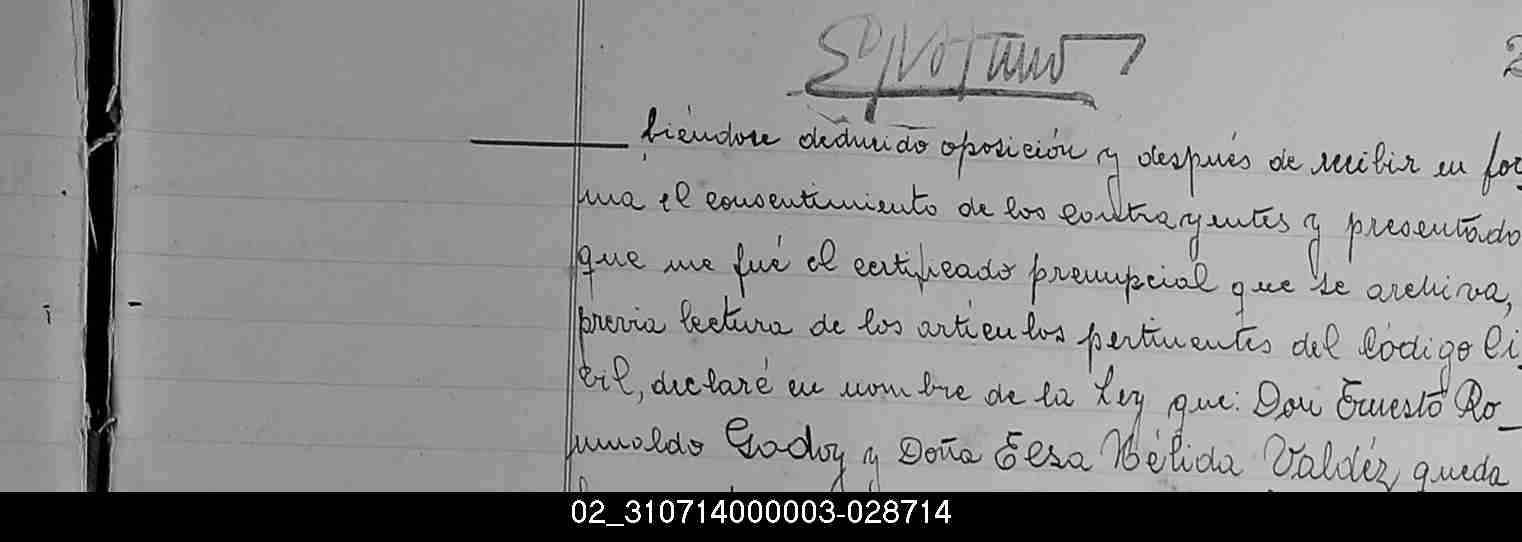 biéndose deducido oposición y después de recibir en for
ma el consentimiento de los contrayentes y presentado
que me fué el certificado prenupcial que se archiva,
previa lectura de los artículos pertinentes del Código Ci
vil, declaré en nombre de la Ley que: Don Ernesto Ro_
mualdo Godoy y Doña Elsa Nélida Valdéz, queda
02_310714000003-028714